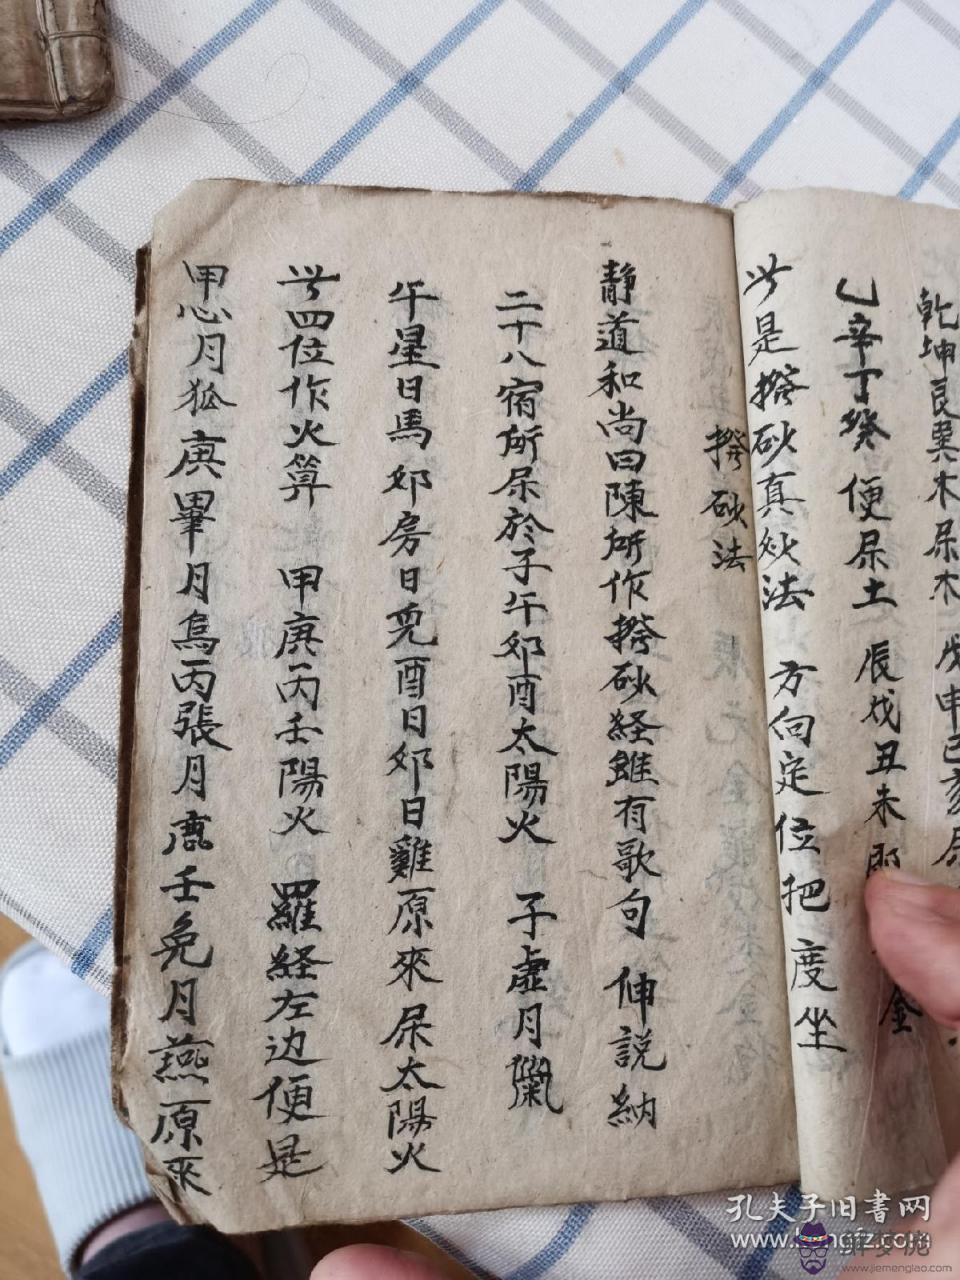 乾坤艮巽木屎木
戊申巳亥
乙辛丁癸便屎土 辰戌丑未
金
㪯是撥砂真妙法 方向定位把度坐
撥砂法
静道和尚曰陳所作撥砂経雖有歌句 伸説納
二十八宿所屎於子午邜酉太陽火 子虚月䑕
午星日馬邜房日兎酉日邜日雞原來屎太陽火
㪯四位作火算 甲庚丙壬陽火 羅経左边便是
甲心月狐庚畢月烏丙張月鹿壬免月燕原來
孔夫子旧书网
www.kongfz.com
www.jiemenglao.com